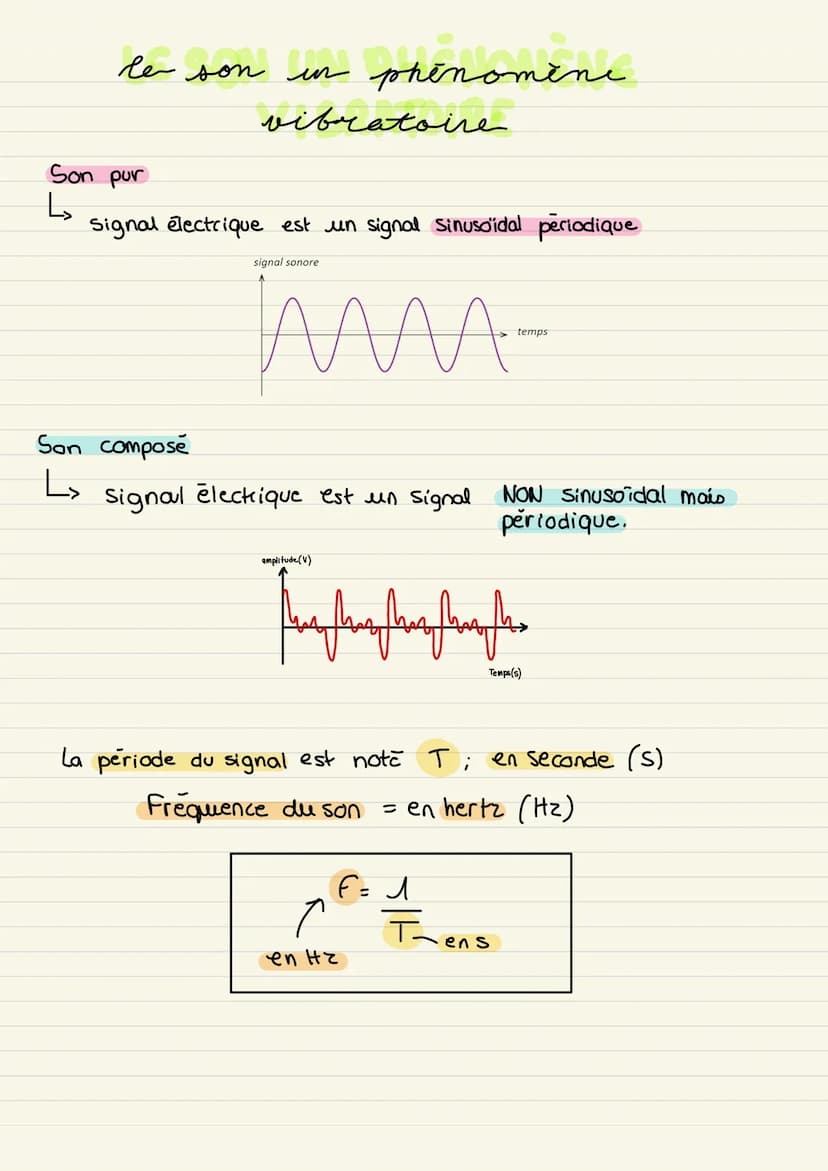 le son un phénomène
vibratoire
Son pur
↳ Signal électrique est un signal sinusoïdal périodique
signal sonore
temps
Son composé
↳ Signal électrique est un signal NON sinusoïdal mais
périodique.
amplitude(V)
Temps(s)
La période du signal est noté T ; en seconde (s)
Fréquence du son = en hertz (Hz)
F = 1
T
en s
en Hz